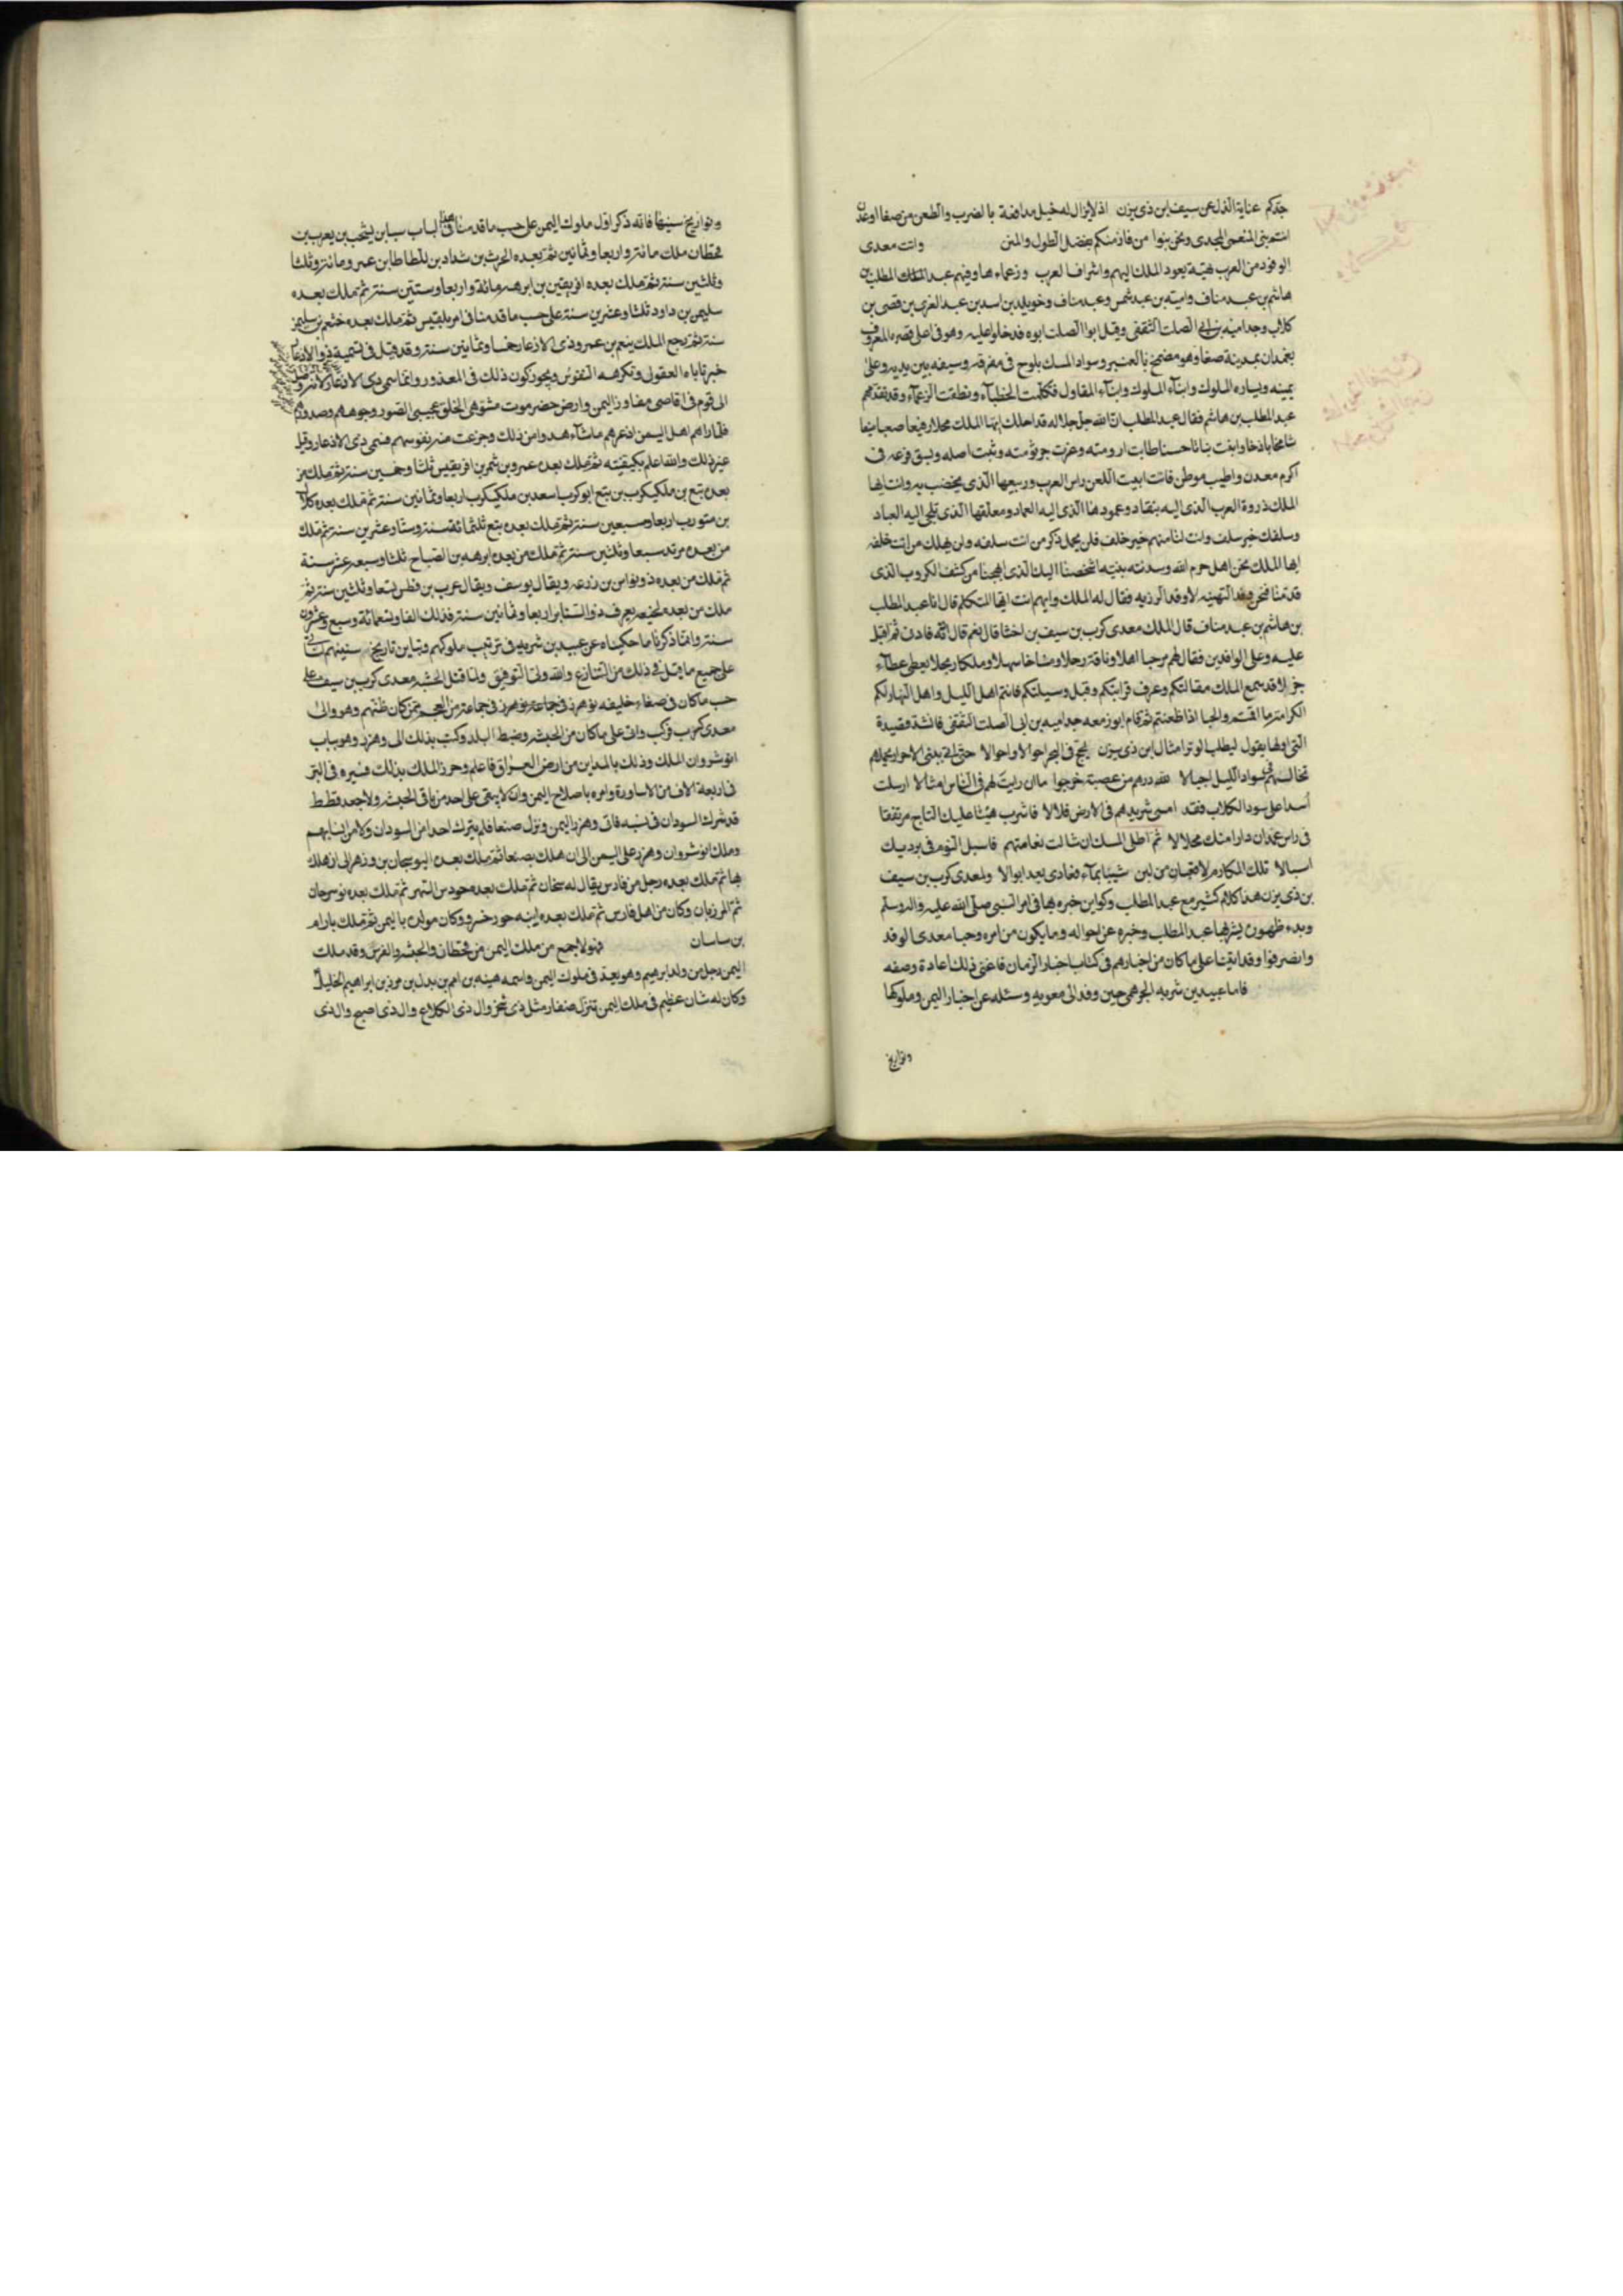 جدكم عناية الذل عن سيف بن ذي يزن اذ لا يزال له خيل مدافعة بالضرب والطعن من صنعا او عدن
انتم بني المنعمي المجدي ونحن بنوا من فاز منكم بفضل الطول والمنن واتت معدى
الوفود من العرب هنية بعود الملك اليهم واشراف العرب وزعماءها وفيهم عبد المطلب بن
هاشم بن عبد مناف وامية بن عبد شمس وعبد مناف وخويلد بن اسد بن عبد العزى بن قصى بن
كلاب وجد امية بن ابي الصلت الثقفى وقيل ابو الصلت ابوه فدخلوا عليه وهو فى اعلى قصره المعروف
بغمدان بمدينة صنعا وهو مضمخ بالعنبر وسواد المسك يلوح فى مفرقه وسيفه بين يديه وعلى
يمينه ويساره الملوك وابناء الملوك وابناء المقاول فتكلمت الخطباء ونطقت الزعماء وقد تقدمهم
عبد المطلب بن هاشم فقال عبد المطلب ان الله جل جلاله قد احلك ايها الملك محلا رفيعا صعبا منيعا
شامخا باذخا وانبت نباتا حسنا طابت ارومته وعزت جرثومته وثبت اصله وبسق فرعه فى
اكرم معدن واطيب موطن فانت ابيت اللعن راس العرب وربيعها الذى يخضب به وانت ايها
الملك ذروة العرب الذى اليه ينقاد وعمودها الذى اليه العماد ومعلقها الذى تلجى اليه العباد
وسلفك خير سلف وانت لنا منهم خير خلف فلن يخمل ذكر من انت سلفه ولن يهلك من انت خلفه
ايها الملك نحن اهل حرم الله وسدنة بيته اشخصنا اليك الذى ابهجنا من كشف الكروب الذى
قدمنا فنحن وفد التهنيه لا وفد الرزيه فقال له الملك وايهم انت ايها المتكلم قال انا عبد المطلب
بن هاشم بن عبد مناف قال الملك معدى كرب بن سيف بن اختنا قال نعم قال ادنه فادن ثم اقبل
عليه وعلى الوافدين فقال لهم مرحبا اهلا وناقة ورحلا ومناخا سهلا وملكا ربحلا يعطى عطاء
جزلا قد سمع الملك مقالتكم وعرف قرابتكم وقبل وسيلتكم فانتم اهل الليل واهل النهار لكم
الكرامة ما اقمتم والحبا اذا ظعنتم ثم قام ابو زمعه جد اميه بن ابى الصلت الثقفى فانشده قصيدة
التى اولها يقول ليطلب الوتر امثال ابن ذى يزن لجج فى البحر احوالا واحوالا حتى اتى ببنى الاحرار يحملهم
تخالهم فى سواد الليل اجبالا لله درهم من عصبة خرجوا ما ان رايت لهم فى الناس امثالا ارسلت
اسدا على سود الكلاب فقد امسى شريدهم فى الارض فلالا فاشرب هنيئا عليك التاج مرتفقا
فى راس غمدان دارا منك محلالا ثم اطل المسك ان شالت نعامتهم فاسبل اليوم فى برديك
اسبالا تلك المكارم لا قعبان من لبن شيبا بماء فعادى بعد ابوالا ولمعدى كرب بن سيف
بن ذى يزن هذا كلام كثير مع عبد المطلب وكواين خبره بها فى امر النبى صلى الله عليه واله وسلم
وبدء ظهوره يبشر بها عبد المطلب وخبره عن احواله وما يكون من امره وحبا معدى الوفد
وانصرفوا وقد اتينا على ما كان من اخبارهم فى كتاب اخبار الزمان فاغنى ذلك اعادة وصفه
فاما عبيد بن شريه الجرهمى حين وفد الى معويه وسئله عن اخبار اليمن وملوكها
وتواريخ
وتواريخ سنيها فانه ذكر اول ملوك اليمن على حسب ما قدمنا فى هذا الباب سبا بن يشجب بن يعرب بن
قحطان ملك مائة واربعا وثمانين ثم بعده الحرث بن شداد بن ملطاط بن عمرو مائة وثلثا
وثلثين سنة ثم ملك بعده افريقين بن ابرهه مائة واربعا وستين سنة ثم ملك بعده
سليمن بن داود ثلثا وعشرين سنة على حسب ما قدمنا فى امر بلقيس ثم ملك بعده خثعم بن سليمن
سنة ثم رجع الملك ينعم بن عمرو ذى الاذعار خمسا وثمانين سنة وقد قيل فى تسمية ذو الاذعار
خبر تاباه العقول وتكرهه النفوس ويجوز كون ذلك فى المقدور وانما سمى ذى الاذعار لانه وصل
الى قوم فى اقاصى مفاوز اليمن وارض حضرموت مشوهى الخلق عجيبى الصور وجوههم وصدورهم
فلما راهم اهل اليمن اذعرهم ما شاهدوا من ذلك وجزعت منه نفوسهم فسمى ذى الاذعار وقيل
غير ذلك والله اعلم بكيفيته ثم ملك بعده عمرو بن شمر بن افريقيس ثلثا وخمسين سنة ثم ملك من
بعده تبع بن ملكيكرب بن تبع ابو كرب اسعد بن ملكيكرب اربعا وثمانين سنة ثم ملك بعده كلال
بن متورب اربعا وسبعين سنة ثم ملك بعده تبع ثلثمائة سنة وستا وعشرين سنة ثم ملك
من بعده مرثد سبعا وثلثين سنة ثم ملك من بعده ابرهه بن الصباح ثلثا وسبعه عشر سنة
ثم ملك من بعده ذو نواس بن زرعه ويقال يوسف ويقال عرب بن قطن تسعا وثلثين سنة ثم
ملك من بعده لخيعه يعرف ذو الشناتر اربعا وثمانين سنة فذلك الفا وتسعمائة وسبع وعشرون
سنة وانما ذكرنا ما حكيناه عن عبيد بن شريه فى ترتيب ملوكهم وتباين تاريخ سنينهم لناتى
على جميع ما قيل فى ذلك من التنازع والله ولى التوفيق ولما قتل الحبشه معدى كرب بن سيف على
حسب ما كان فى صنعاء خليفه لوهرز فى جماعة من العجم ممن كان ظنهم وهو والى
معدى كرب فركب واتى على ما كان من الحبشه وضبط البلد وكتب بذلك الى وهرز وهو بباب
انوشروان الملك وذلك بالمداين من ارض العراق فاعلم وهرز الملك بذلك فسيره فى البر
فى اربعة الاف من الاساورة وامره باصلاح اليمن وان لا يبقى على احد من باقى الحبشه ولا جعد قطط
قد شرك السودان فى نسبه فاتى وهرز اليمن ونزل صنعا فلم يترك احدا من السودان ولا من انسابهم
وملك انوشروان وهرز على اليمن الى ان هلك بصنعا ثم ملك بعده النوسجان بن وهرز الى ان هلك
بها ثم ملك بعده رجل من فارس يقال له سخان ثم ملك بعده خودس التهر ثم ملك بعده نوسرحان
ثم المرزبان وكان من اهل فارس ثم ملك بعده ابنه حور خسرو وكان مولده باليمن ثم ملك بارام
بن ساسان فهولا جمع من ملك اليمن من قحطان والحبشه والفرس وقد ملك
اليمن رجل من ولد ابرهيم وهو يعد فى ملوك اليمن واسمه هينه بن اميم بن بدل بن مدين بن ابراهيم الخليل
وكان له شان عظيم فى ملك اليمن تنزل صنعا مثل ذى نخر وال ذى الكلاع وال ذى اصبح وال ذى